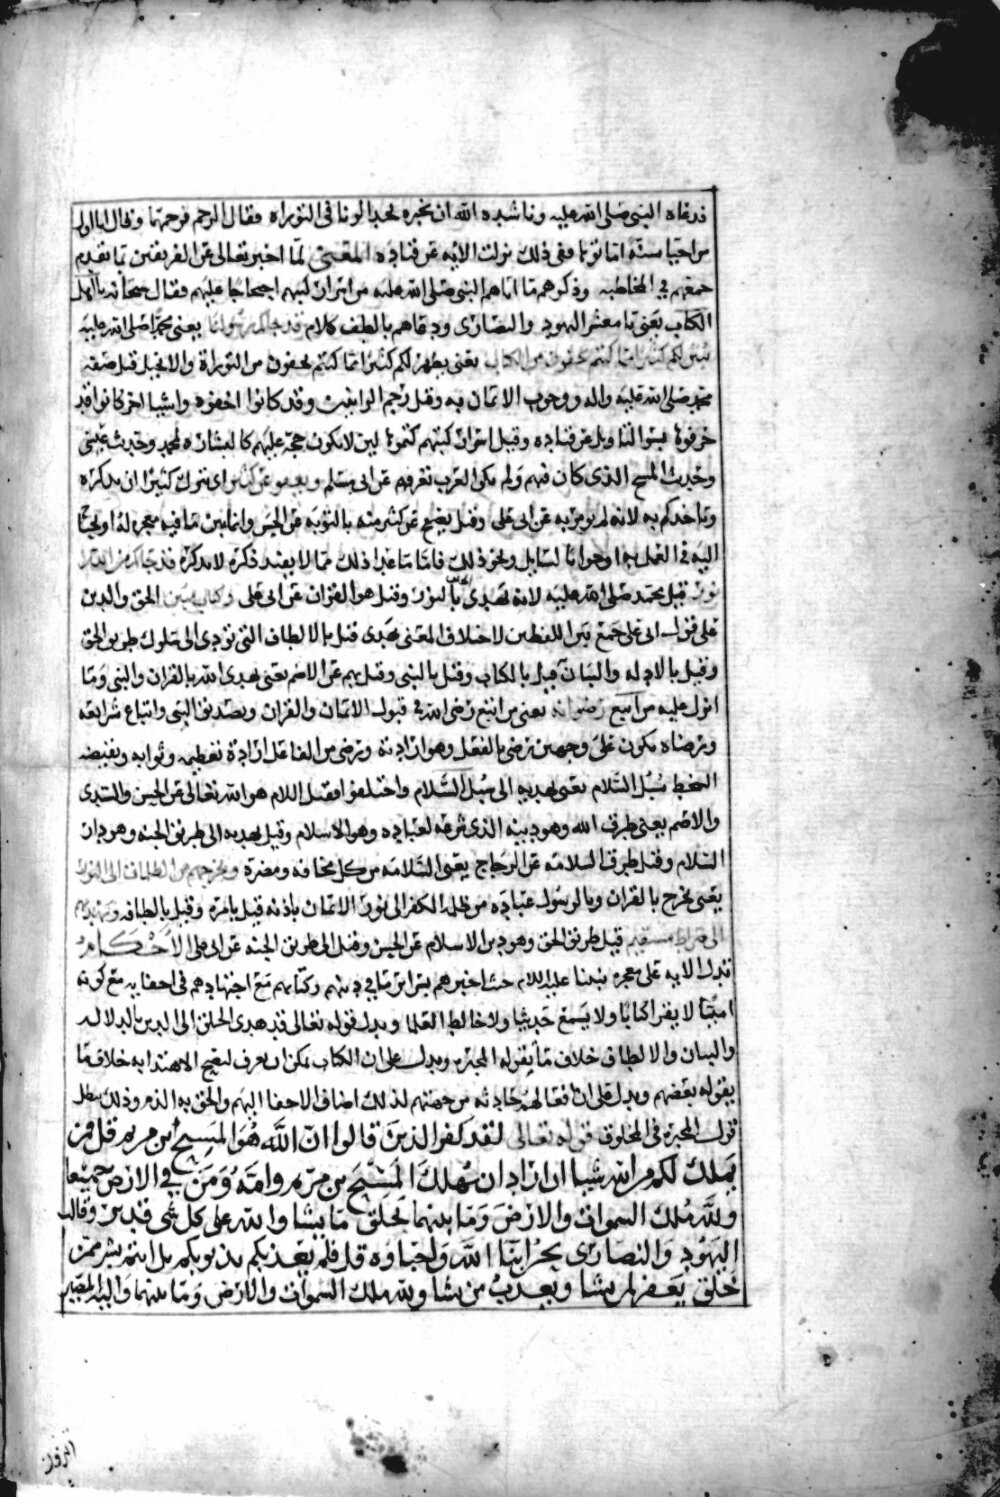 فدعاه النبي صلى الله عليه وناشده الله ان يخبره بحد الزنا في التوراه فقال الرجم فرجمهما وقال انا اول
من احيا سنه اماتوها ففي ذلك نزلت الايه عن قتاده المعنى لما اخبر تعالى عن الفريقين بما تقدم
جمعهم في المخاطبه وذكرهم ما اتاهم النبي صلى الله عليه من اسرار كتبهم احتجاجا عليهم فقال سبحانه يا اهل
الكتاب يعني يا معشر اليهود والنصارى ودعاهم بالطف كلام قد جاكم رسولنا يعني محمدا صلى الله عليه
يبين لكم كثيرا مما كنتم تخفون من الكتاب يعني يظهر لكم كثيرا مما كنتم تخفون من التوراة والانجيل قيل صفه
محمد صلى الله عليه واله ووجوب الايمان به وقيل رجم الزانيين وقد كانوا اخفوه واشيا اخر كانوا قد
حرفوها بسو التاويل عن قتاده وقيل اسرار كتبهم كتموها ليلا يكون حجه عليهم كالبشاره بمحمد وحديث عيسى
وحديث المسخ الذي كان فيهم ولم يكن العرب تعرفه عن ابي مسلم ويعفو عن كثير اي يترك كثيرا ان يذكره
وياخذكم به لانه لم يومر به عن ابي علي وقيل يصفح عن كثير منه بالتوبه عن الحسن وانما بين ما فيه معجزه له او يحتاج
اليه في العمل به او جوابا لسايل ونحو ذلك فاما ما عدا ذلك مما لا يفيد ذكره لا يذكره قد جاكم من الله
نور قيل محمد صلى الله عليه لانه يهتدى به كالنور وقيل هو القران عن ابي علي وكتاب مبين الحق والدين
على قول ابي علي جمع بين اللفظين لاختلاف المعنى يهدي قيل بالالطاف التي تودي الى سلوك طريق الحق
وقيل بالادله والبيان قيل بالكتاب وقيل بالنبي وقيل بهم عن الاصم يعني يهدي الله بالقران والنبي وما
انزل عليه من اتبع رضوانه يعني من اتبع رضى الله في قبول الايمان والقران وتصديق النبي واتباع شرائعه
ورضاه يكون على وجهين رضى بالفعل وهو ارادته ورضى من الفاعل ارادة تعظيمه وثوابه ونقيضه
السخط سبل السلام يعني يهديه الى سبل السلام واختلفوا فقيل السلام هو الله تعالى عن الحسن والسدي
والاصم يعني طرق الله وهو دينه الذي شرعه لعباده وهو الاسلام وقيل يهديه الى طريق الجنه وهو دار
السلام وقيل طرق السلامه عن الزجاج يعني السلامه من كل مخافه ومضرة ويخرجهم من الظلمات الى النور
يعني يخرج بالقران وبالرسول عباده من ظلمه الكفر الى نور الايمان باذنه قيل بامره وقيل بالطافه ويهديهم
الى صراط مستقيم قيل طريق الحق وهو دين الاسلام عن الحسن وقيل الى طريق الجنه عن ابي علي الاحكام
تدل الايه على معجزه نبينا عليه السلام حيث اخبرهم بسراير ما في دينهم وكتابهم مع اجتهادهم في اخفايه مع كونه
اميا لا يقرا كتابا ولا يسمع حديثا ولا خالط العلما ويدل قوله تعالى قد هدى الخلق الى الدين بالدلاله
والبيان والالطاف خلاف ما يقوله المجبره ويدل على ان الكتاب يمكن ان يعرف ليصح الاهتدا به خلاف ما
يقوله بعضهم ويدل على ان افعالهم حادثه من جهتهم لذلك اضاف الاخفا اليهم والحق به الذم وذلك يبطل
قول المجبرة في المخلوق قوله تعالى لقد كفر الذين قالوا ان الله هو المسيح ابن مريم قل فمن
يملك لكم من الله شيا ان اراد ان يهلك المسيح بن مريم وامه ومن في الارض جميعا
ولله ملك السموات والارض وما بينهما يخلق ما يشا والله على كل شي قدير وقالت
اليهود والنصارى نحن ابنا الله واحباوه قل فلم يعذبكم بذنوبكم بل انتم بشر ممن
خلق يغفر لمن يشا ويعذب من يشا ولله ملك السموات والارض وما بينهما واليه المصير